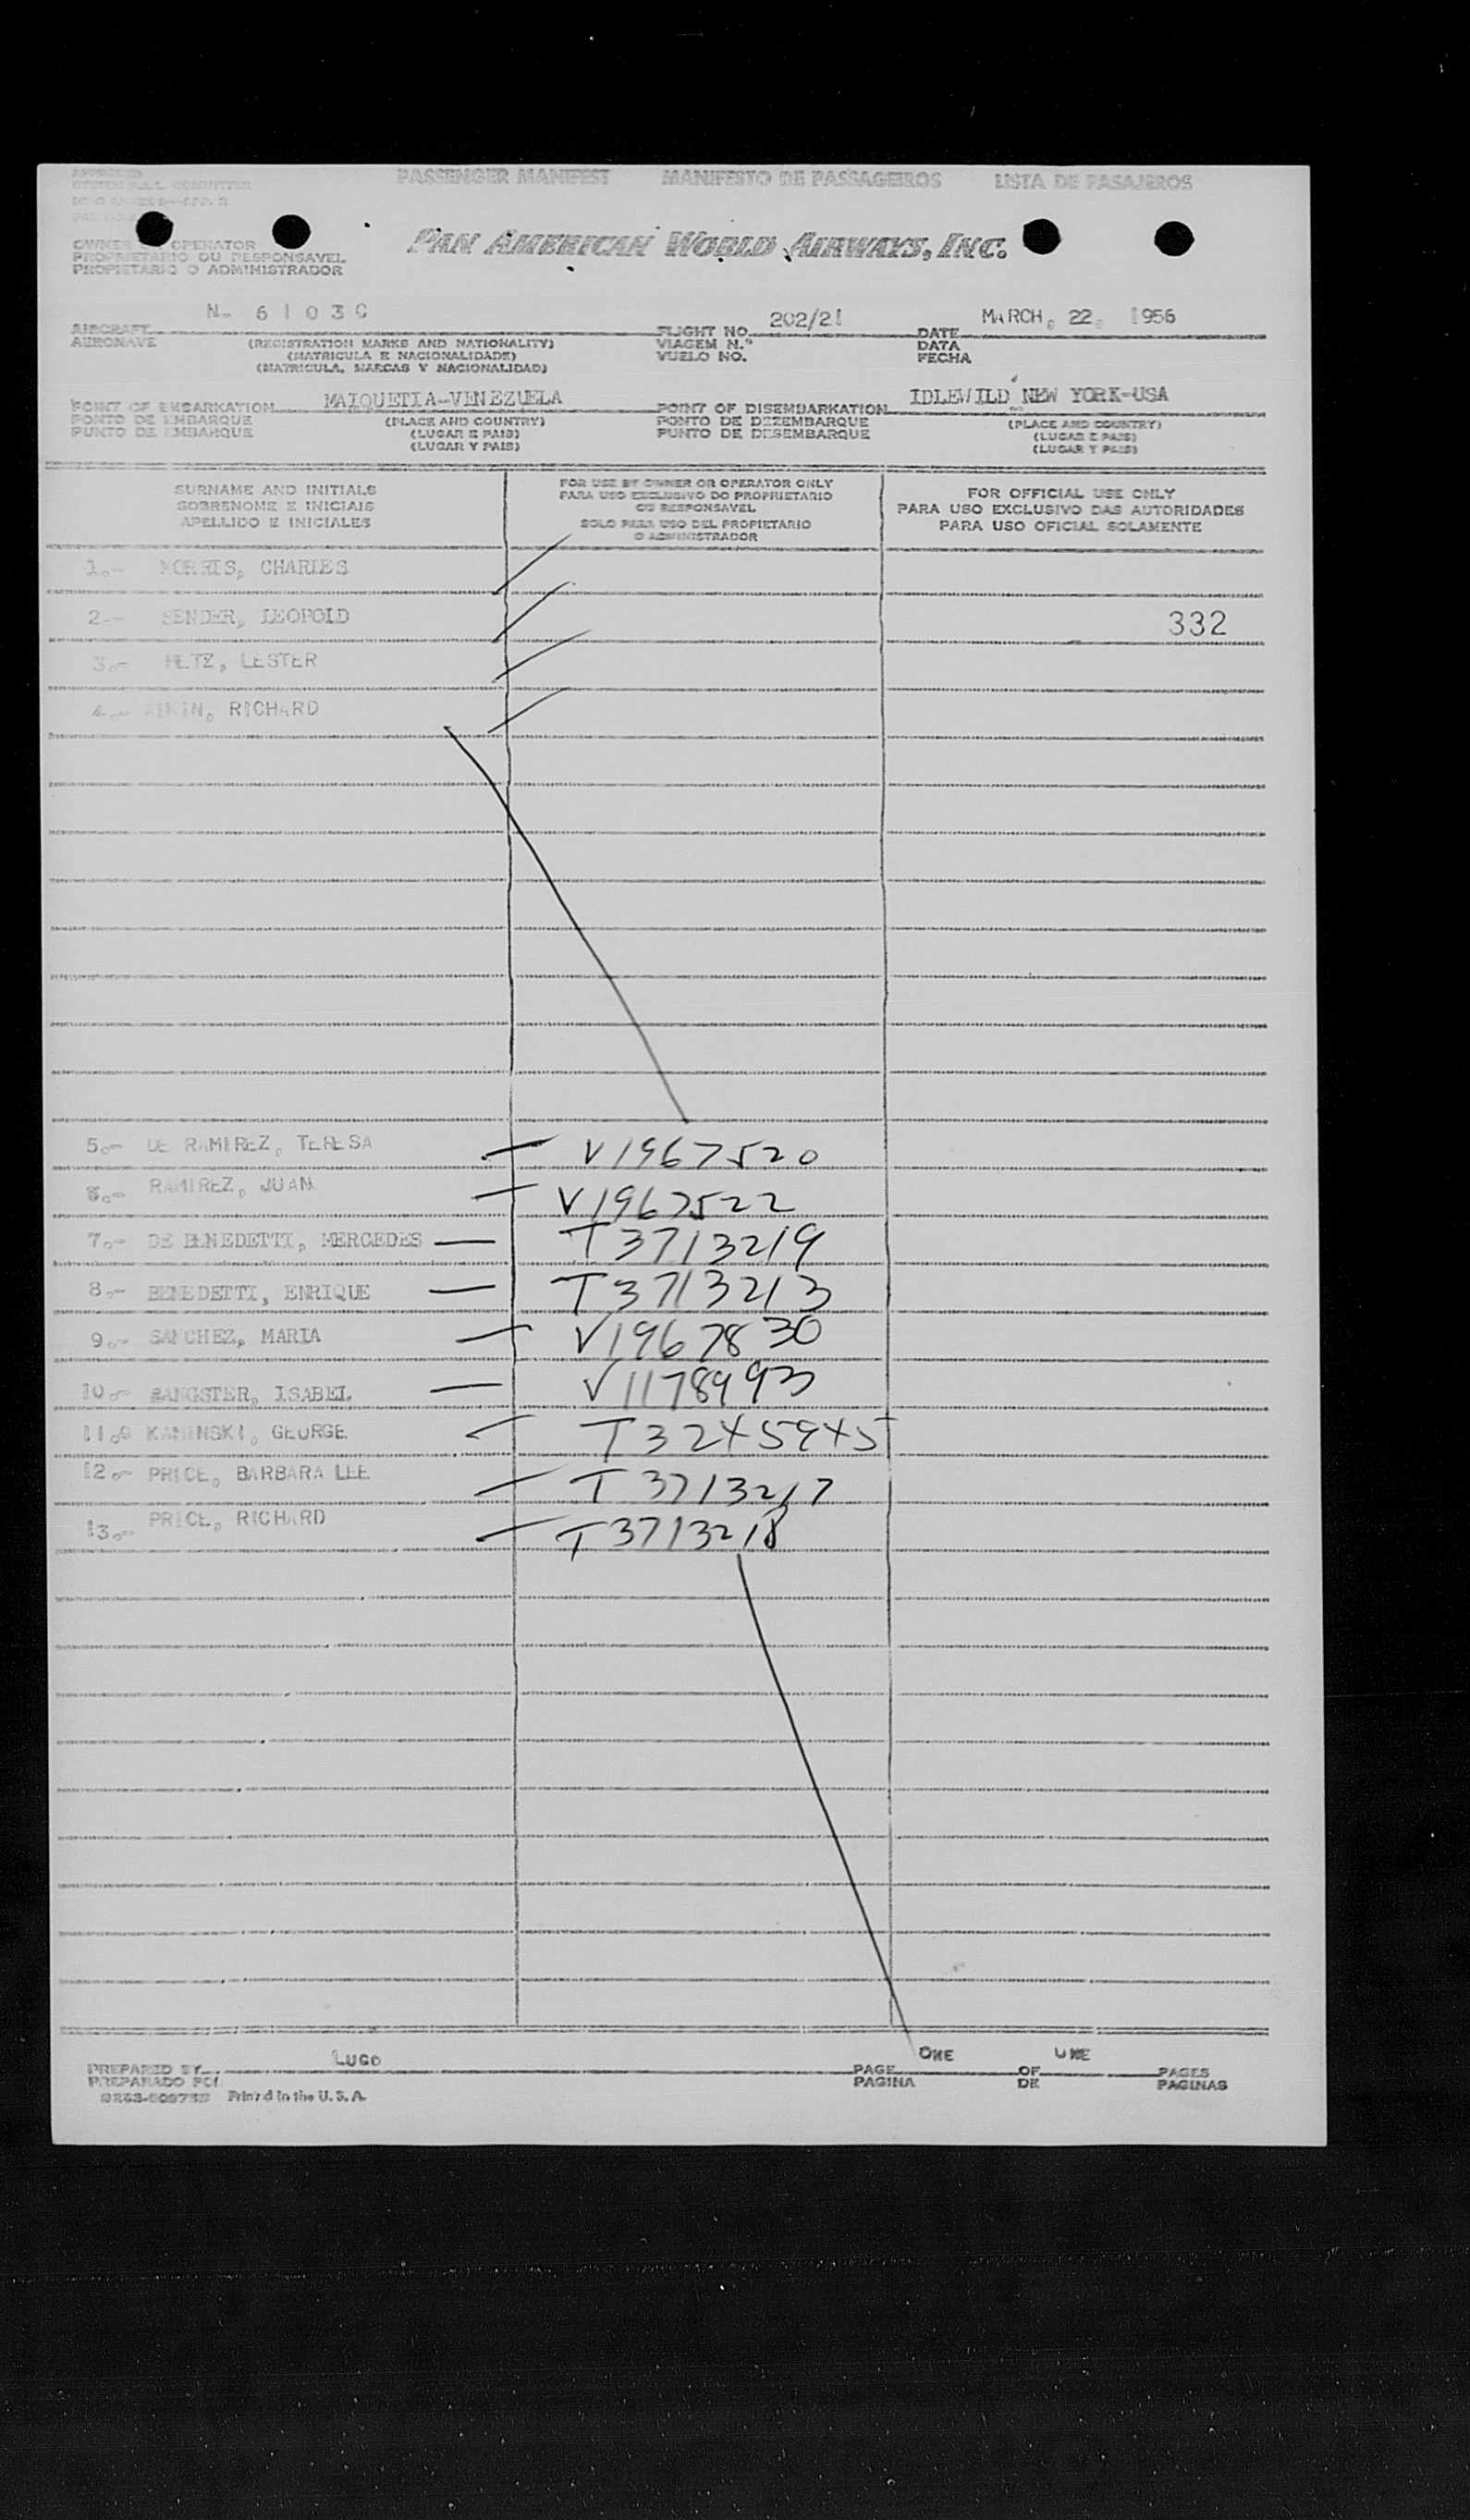 PASSENGER MANIFEST MANIFESTO DE PASSAGEIROS LISTA DE PASAJEROS
APPROVED
OWNER OPERATOR
PROPRIETARIO OU RESPONSAVEL
PROPIETARIO O ADMINISTRADOR
PAN AMERICAN WORLD AIRWAYS, INC.
AIRCRAFT N- 6103C FLIGHT NO. 202/21 DATE MARCH, 22, 1956
AERONAVE (REGISTRATION MARKS AND NATIONALITY) VIAGEM N.º DATA
(MATRICULA E NACIONALIDADE) VUELO NO. FECHA
(MATRICULA, MARCAS Y NACIONALIDAD)
POINT OF EMBARKATION MAIQUETIA-VENEZUELA POINT OF DISEMBARKATION IDLEWILD NEW YORK-USA
PONTO DE EMBARQUE (PLACE AND COUNTRY) PONTO DE DEZEMBARQUE (PLACE AND COUNTRY)
PUNTO DE EMBARQUE (LUGAR E PAIS) PUNTO DE DESEMBARQUE (LUGAR E PAIS)
(LUGAR Y PAIS) (LUGAR Y PAIS)
SURNAME AND INITIALS
SOBRENOME E INICIAIS
APELLIDO E INICIALES
FOR USE BY OWNER OR OPERATOR ONLY
PARA USO EXCLUSIVO DO PROPRIETARIO
OU RESPONSAVEL
SOLO PARA USO DEL PROPIETARIO
O ADMINISTRADOR
FOR OFFICIAL USE ONLY
PARA USO EXCLUSIVO DAS AUTORIDADES
PARA USO OFICIAL SOLAMENTE
1.- MORRIS, CHARLES
2.- SENDER, LEOPOLD 332
3.- METZ, LESTER
4.- RICHARD
5.- DE RAMIREZ, TERESA V1967520
6.- RAMIREZ, JUAN V1967522
7.- DE BENEDETTI, MERCEDES T3713219
8.- BENEDETTI, ENRIQUE T3713213
9.- SANCHEZ, MARIA V1967830
10.- SANGSTER, ISABEL V1178993
11.- KAMINSKI, GEORGE T3245945
12.- PRICE, BARBARA LEE T3713217
13.- PRICE, RICHARD T3713218
PREPARED BY LUGO PAGE ONE OF ONE PAGES
PREPARADO POR PAGINA DE PAGINAS
Printed in the U.S.A.